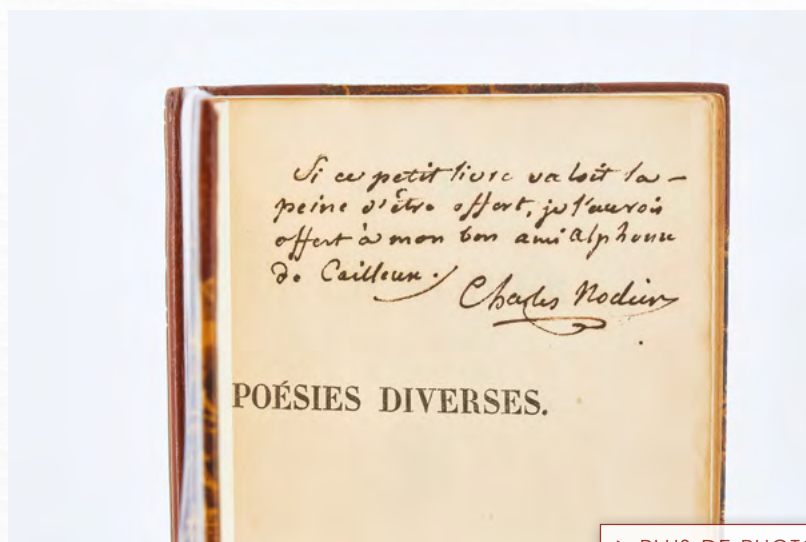 Si ce petit livre valoit la –
peine d'être offert, je l'aurois
offert à mon bon ami Alphonse
de Cailleux.
Charles Nodier
POÉSIES DIVERSES.
PLUS DE